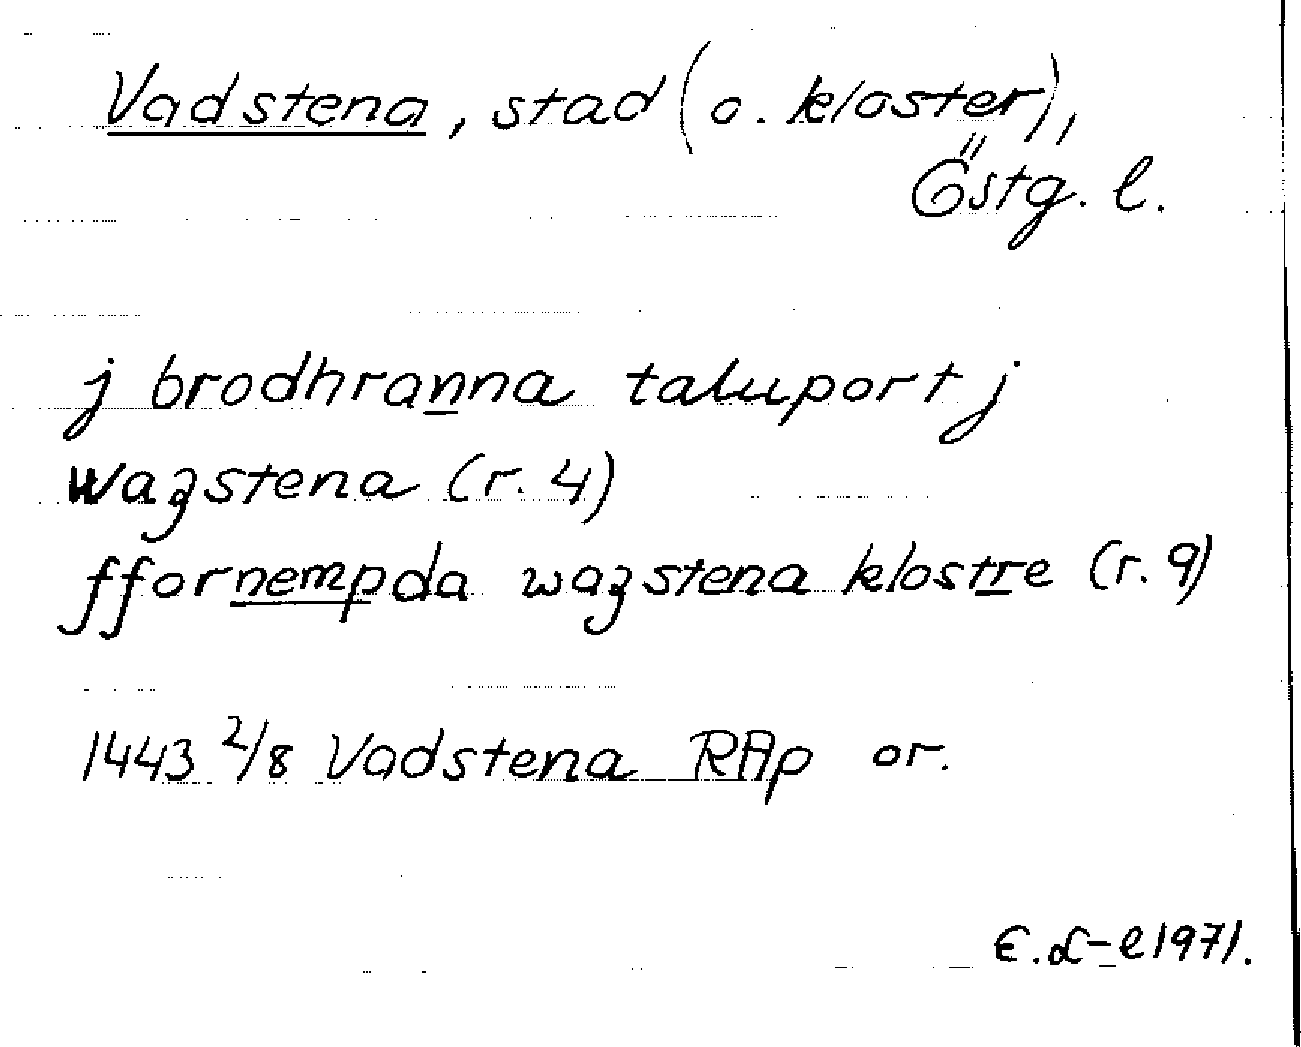 Vadstena, stad (o. kloster),
Östg. l.
j brodhranna taluport j
wazstena (r. 4)
ffornempda wazstena klostre (r. 9)
1443 2/8 Vadstena RAp or.
E. L-l 1971.